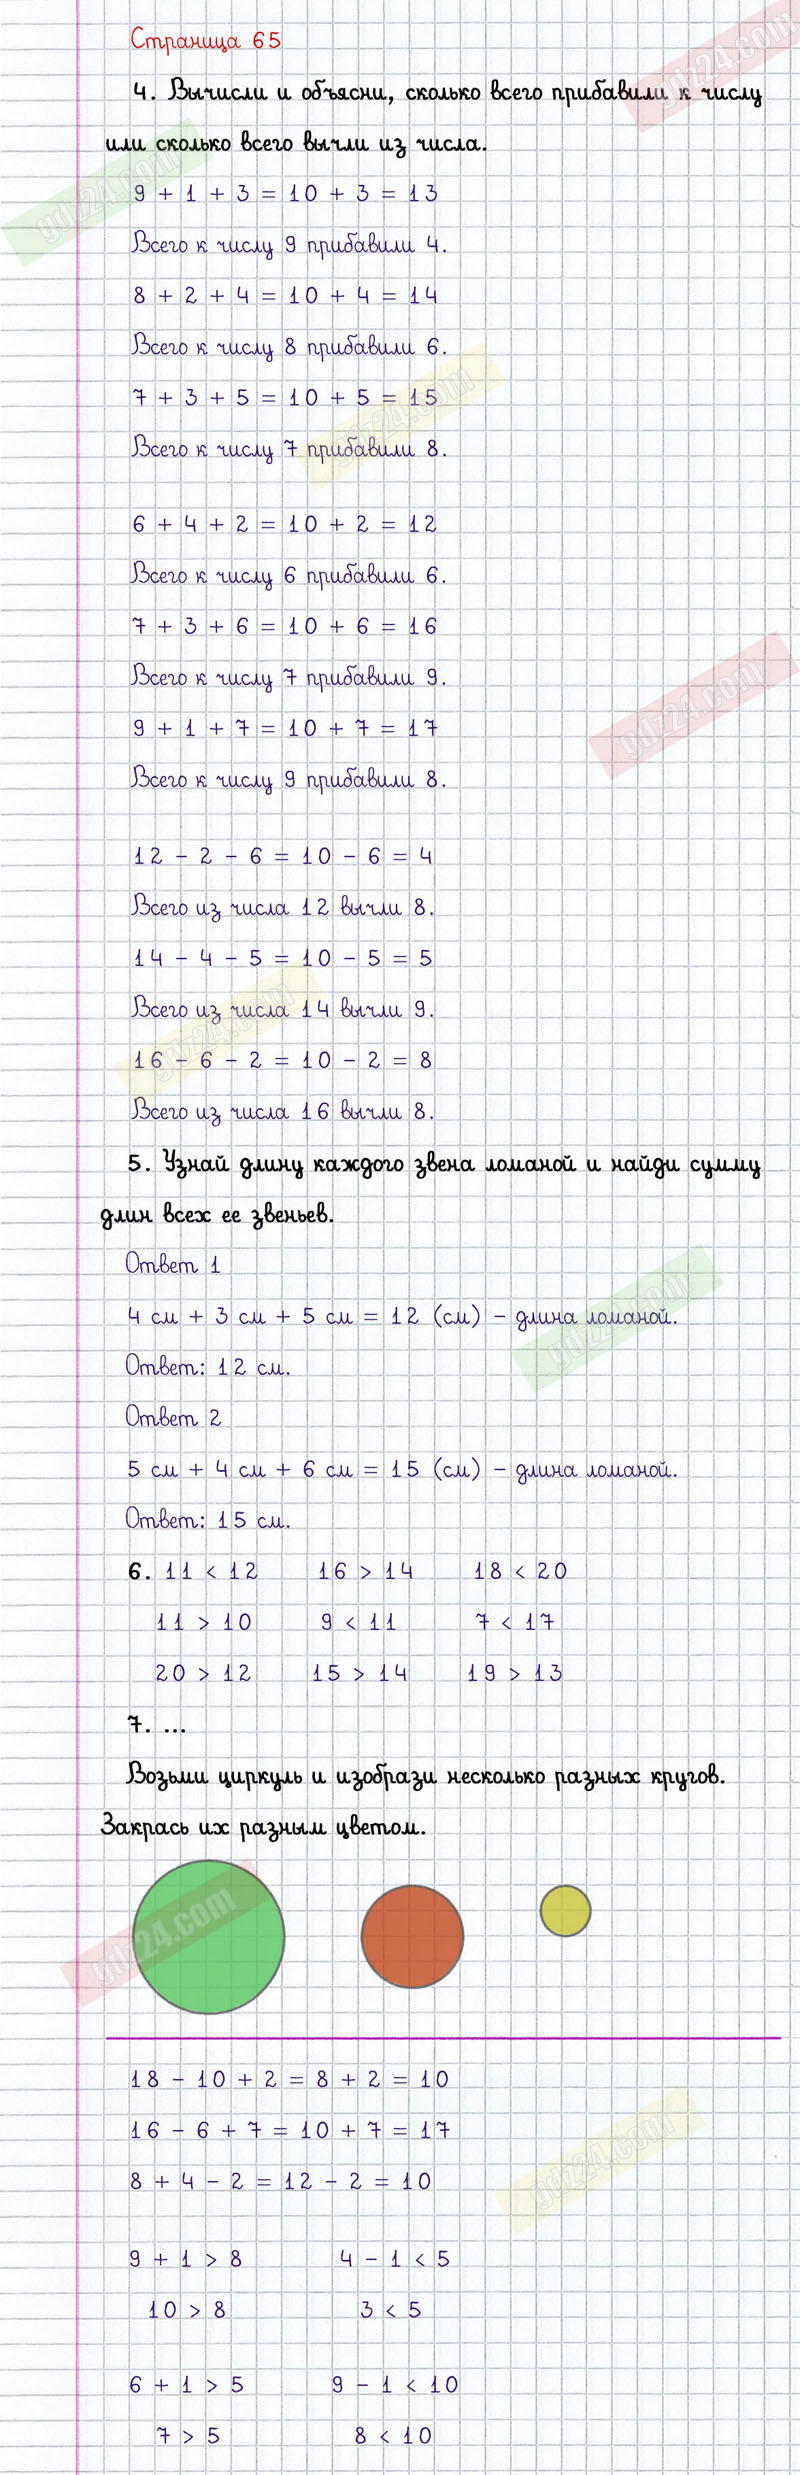 Страница 65
4. Вычисли и объясни, сколько всего прибавили к числу
или сколько всего вычли из числа.
9 + 1 + 3 = 10 + 3 = 13
Всего к числу 9 прибавили 4.
8 + 2 + 4 = 10 + 4 = 14
Всего к числу 8 прибавили 6.
7 + 3 + 5 = 10 + 5 = 15
Всего к числу 7 прибавили 8.
6 + 4 + 2 = 10 + 2 = 12
Всего к числу 6 прибавили 6.
7 + 3 + 6 = 10 + 6 = 16
Всего к числу 7 прибавили 9.
9 + 1 + 7 = 10 + 7 = 17
Всего к числу 9 прибавили 8.
12 - 2 - 6 = 10 - 6 = 4
Всего из числа 12 вычли 8.
14 - 4 - 5 = 10 - 5 = 5
Всего из числа 14 вычли 9.
16 - 6 - 2 = 10 - 2 = 8
Всего из числа 16 вычли 8.
5. Узнай длину каждого звена ломаной и найди сумму
длин всех ее звеньев.
Ответ 1
4 см + 3 см + 5 см = 12 (см) - длина ломаной.
Ответ: 12 см.
Ответ 2
5 см + 4 см + 6 см = 15 (см) - длина ломаной.
Ответ: 15 см.
6. 11 < 12 16 > 14 18 < 20
11 > 10 9 < 11 7 < 17
20 > 12 15 > 14 19 > 13
7. ...
Возьми циркуль и изобрази несколько разных кругов.
Закрась их разным цветом.
18 - 10 + 2 = 8 + 2 = 10
16 - 6 + 7 = 10 + 7 = 17
8 + 4 - 2 = 12 - 2 = 10
9 + 1 > 8 4 - 1 < 5
10 > 8 3 < 5
6 + 1 > 5 9 - 1 < 10
7 > 5 8 < 10
gdz24.com
gdz24.com
gdz24.com
gdz24.com
gdz24.com
gdz24.com
gdz24.com
gdz24.com